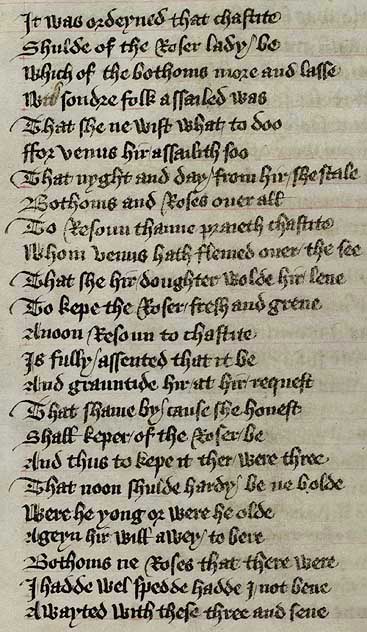 It was ordeyned that chastite
Shulde of the Roser lady / be
Which of the bothoms more and lasse
With sondre folk assailed was
That she ne wist what to doo
ffor venus hir assailith soo
That nyght and day / from hir / she stale
Bothoms and Roses ouer all
To Resoun thanne praieth chastite
Whom venus hath flemed ouer / the see
That she hir doughter wolde hir / lene
To kepe the Roser / fresh and grene
Anoon Resoun to chastite
Is fully / assented that it be
And grauntide hir / at hir request
That shame by / cause she honest
Shall keper / of the Roser / be
And thus to kepe it ther / were three
That noon shulde hardy / be ne bolde
Were he yong or were he olde
Ageyn hir will awey / to bere
Bothoms ne Roses that there were
I hadde wel spedde hadde I not bene
Awayted with these three and sene